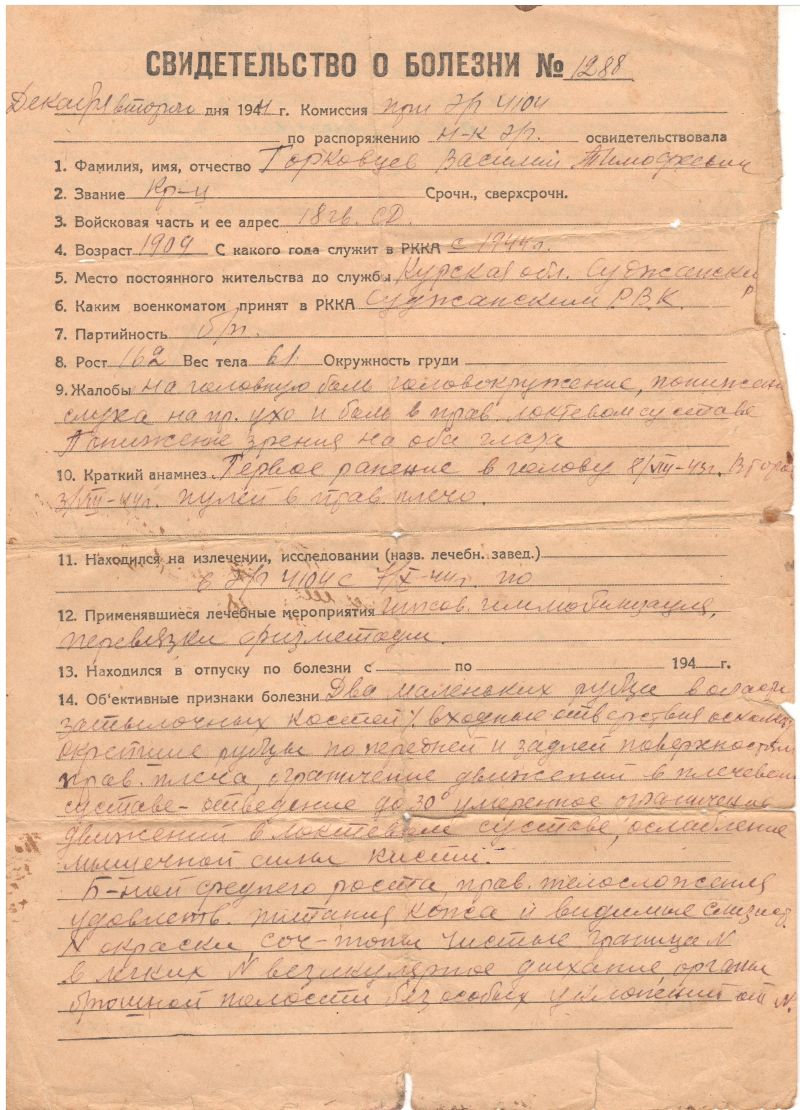 СВИДЕТЕЛЬСТВО О БОЛЕЗНИ № 1288
Декабря второго дня 1944 г. Комиссия при э/г 4104
по распоряжению н-к э/г. освидетельствовала
1. Фамилия, имя, отчество Горковцев Василий Тимофеевич
2. Звание Кр-ц Срочн., сверхсрочн.
3. Войсковая часть и ее адрес 18 гв. СД.
4. Возраст 1909 С какого года служит в РККА с 1944 г.
5. Место постоянного жительства до службы Курская обл. Суджански
6. Каким военкоматом принят в РККА Суджанским Р.В.К. р
7. Партийность б/п.
8. Рост 162 Вес тела 61 Окружность груди
9. Жалобы на головную боль головокружение, понижен
слуха на пр. ухо и боль в прав локтевом суставе
Понижение зрения на оба глаза
10. Краткий анамнез Первое ранение в голову 8/VII-43г. Второ
3/VII-44г. пулей в прав. плечо.
11. Находился на излечении, исследовании (назв. лечебн. завед.)
в э/г 4104 с 7/X-44г. по
12. Применявшиеся лечебные мероприятия гипсов. иммобилизация,
перевязки физметоды.
13. Находился в отпуску по болезни с по 194 г.
14. Об'ективные признаки болезни Два маленьких рубца в област
затылочных костей / входные отверстия осколка/
окрепшие рубцы по передней и задней поверхностям
прав. плеча, ограничение движений в плечевом
суставе - отведение до 30° умеренное ограничение
движений в локтевом суставе, ослабление
мышечной силы кисти.
Б-ной среднего роста, прав. телосложения
удовлетв. питания кожа и видимые слизист.
N окраски сог-тоны чистые граница N
в легких N везикулярное дыхание, органы
брюшной полости без особых уклонений от N.